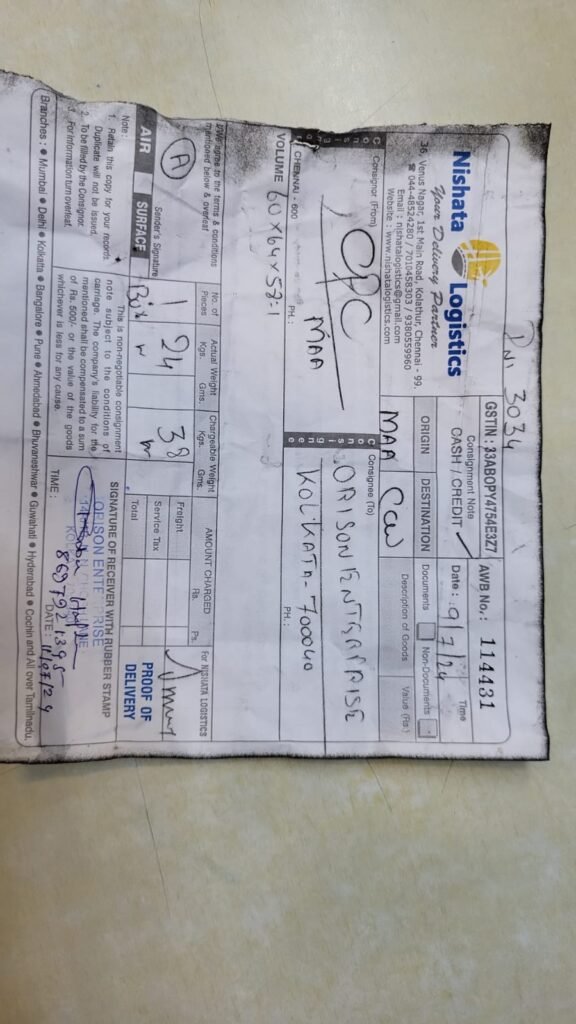 INV 3034
Nishata Logistics
Your Delivery Partner
36, Venus Nagar, 1st Main Road, Kolathur, Chennai - 99.
☎ 044-48524280 / 7010458303 / 9380559960
Email : nishatalogistics@gmail.com
Website : www.nishatalogistics.com
GSTIN : 33ABOPY4754E3Z7
Consignment Note
CASH / CREDIT
AWB No.: 114431
Date : 9/7/24
Time
ORIGIN
MAA
DESTINATION
CCU
Documents
Non-Documents
Description of Goods
Value (Rs.)
Consignor (From)
CPC
MAA
CHENNAI - 600
PH.:
Consignee (To)
ORISON ENTERPRISE
KOLKATA - 700040
PH.:
VOLUME 60x64x57-1
I/We agree to the terms & conditions
mentioned below & overleaf
A
Sender's Signature
AIR
SURFACE
No. of Pieces
1
Box
Actual Weight
Kgs. Gms.
24
Chargeable Weight
Kgs. Gms.
38
AMOUNT CHARGED
Rs. Ps.
Freight
Service Tax
Total
For NISHATA LOGISTICS
PROOF OF
DELIVERY
Note :
1. Retain this copy for your records.
Duplicate will not be issued.
2. To be filled by the Consignor.
3. For information turn overleaf.
This is non-negotiable consignment
note subject to the conditions of
carriage. The company's liability for the
mentioned shall be compensated to a sum
of Rs. 500/- or the value of the goods
whichever is less for any cause.
SIGNATURE OF RECEIVER WITH RUBBER STAMP
ORISON ENTERPRISE
8697921395
TIME :
DATE : 11/07/24
Branches : ● Mumbai ● Delhi ● Kolkatta ● Bengalore ● Pune ● Ahmedabad ● Bhuvaneshwar ● Guwahati ● Hyderabad ● Cochin and All over Tamilnadu.